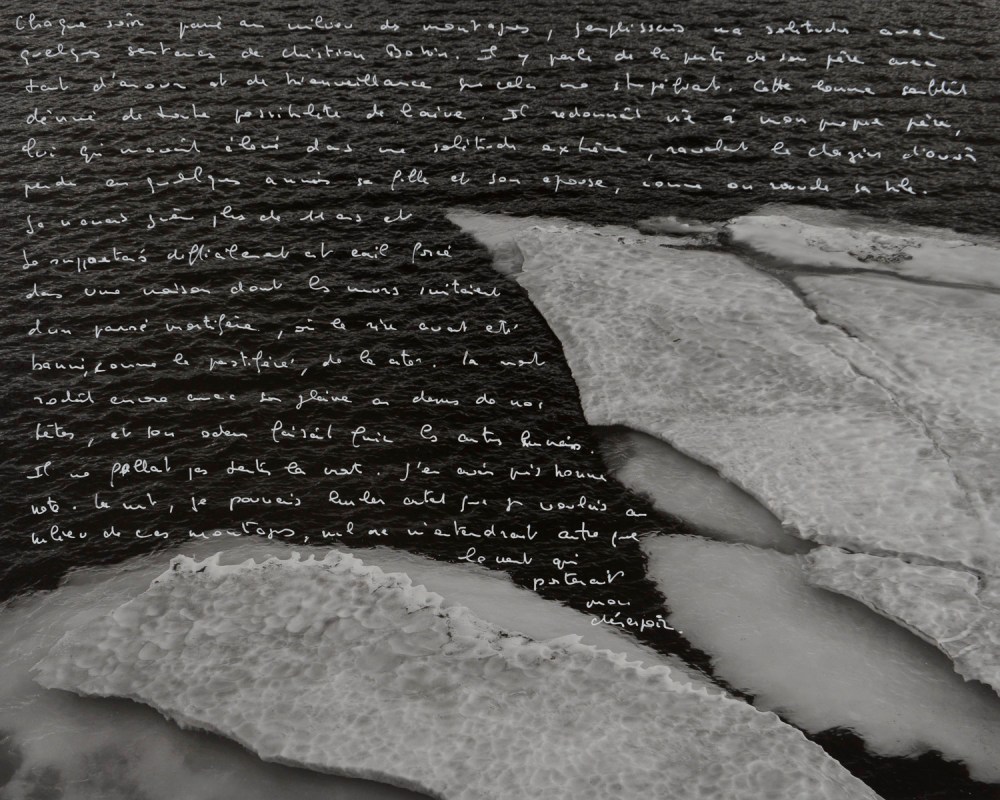 Chaque soir, parmi au milieu de montagnes, j'emplissais ma solitude avec
quelques sentences de Christian Bobin. Il y parle de la perte de son père avec
tant d'amour et de bienveillance que cela me stupéfiait. Cette homme semblait
dénué de toute possibilité de haine. Il redonnait vie à mon propre père,
lui qui m'avait élevé dans une solitude extrême, ravalant le chagrin d'avoir
perdu en quelques années sa fille et son épouse, comme on ravale sa bile.
Je n'avais guère plus de 11 ans et
Je supportais difficilement cet exil forcé
dans une maison dont les murs suintaient
d'un passé mortifère, où le rire avait été
banni, comme le pestiféré, de la cité. La mort
rodait encore avec son glaive au dessus de nos
têtes, et son odeur faisait fuir les autres humains.
Il ne fallait pas sentir la mort. J'en avais pris bonne
note. La nuit, je pouvais hurler autant que je voulais au
milieu de ces montagnes, nul ne m'entendrait autre que
le vent qui
porterait
mon
désespoir.